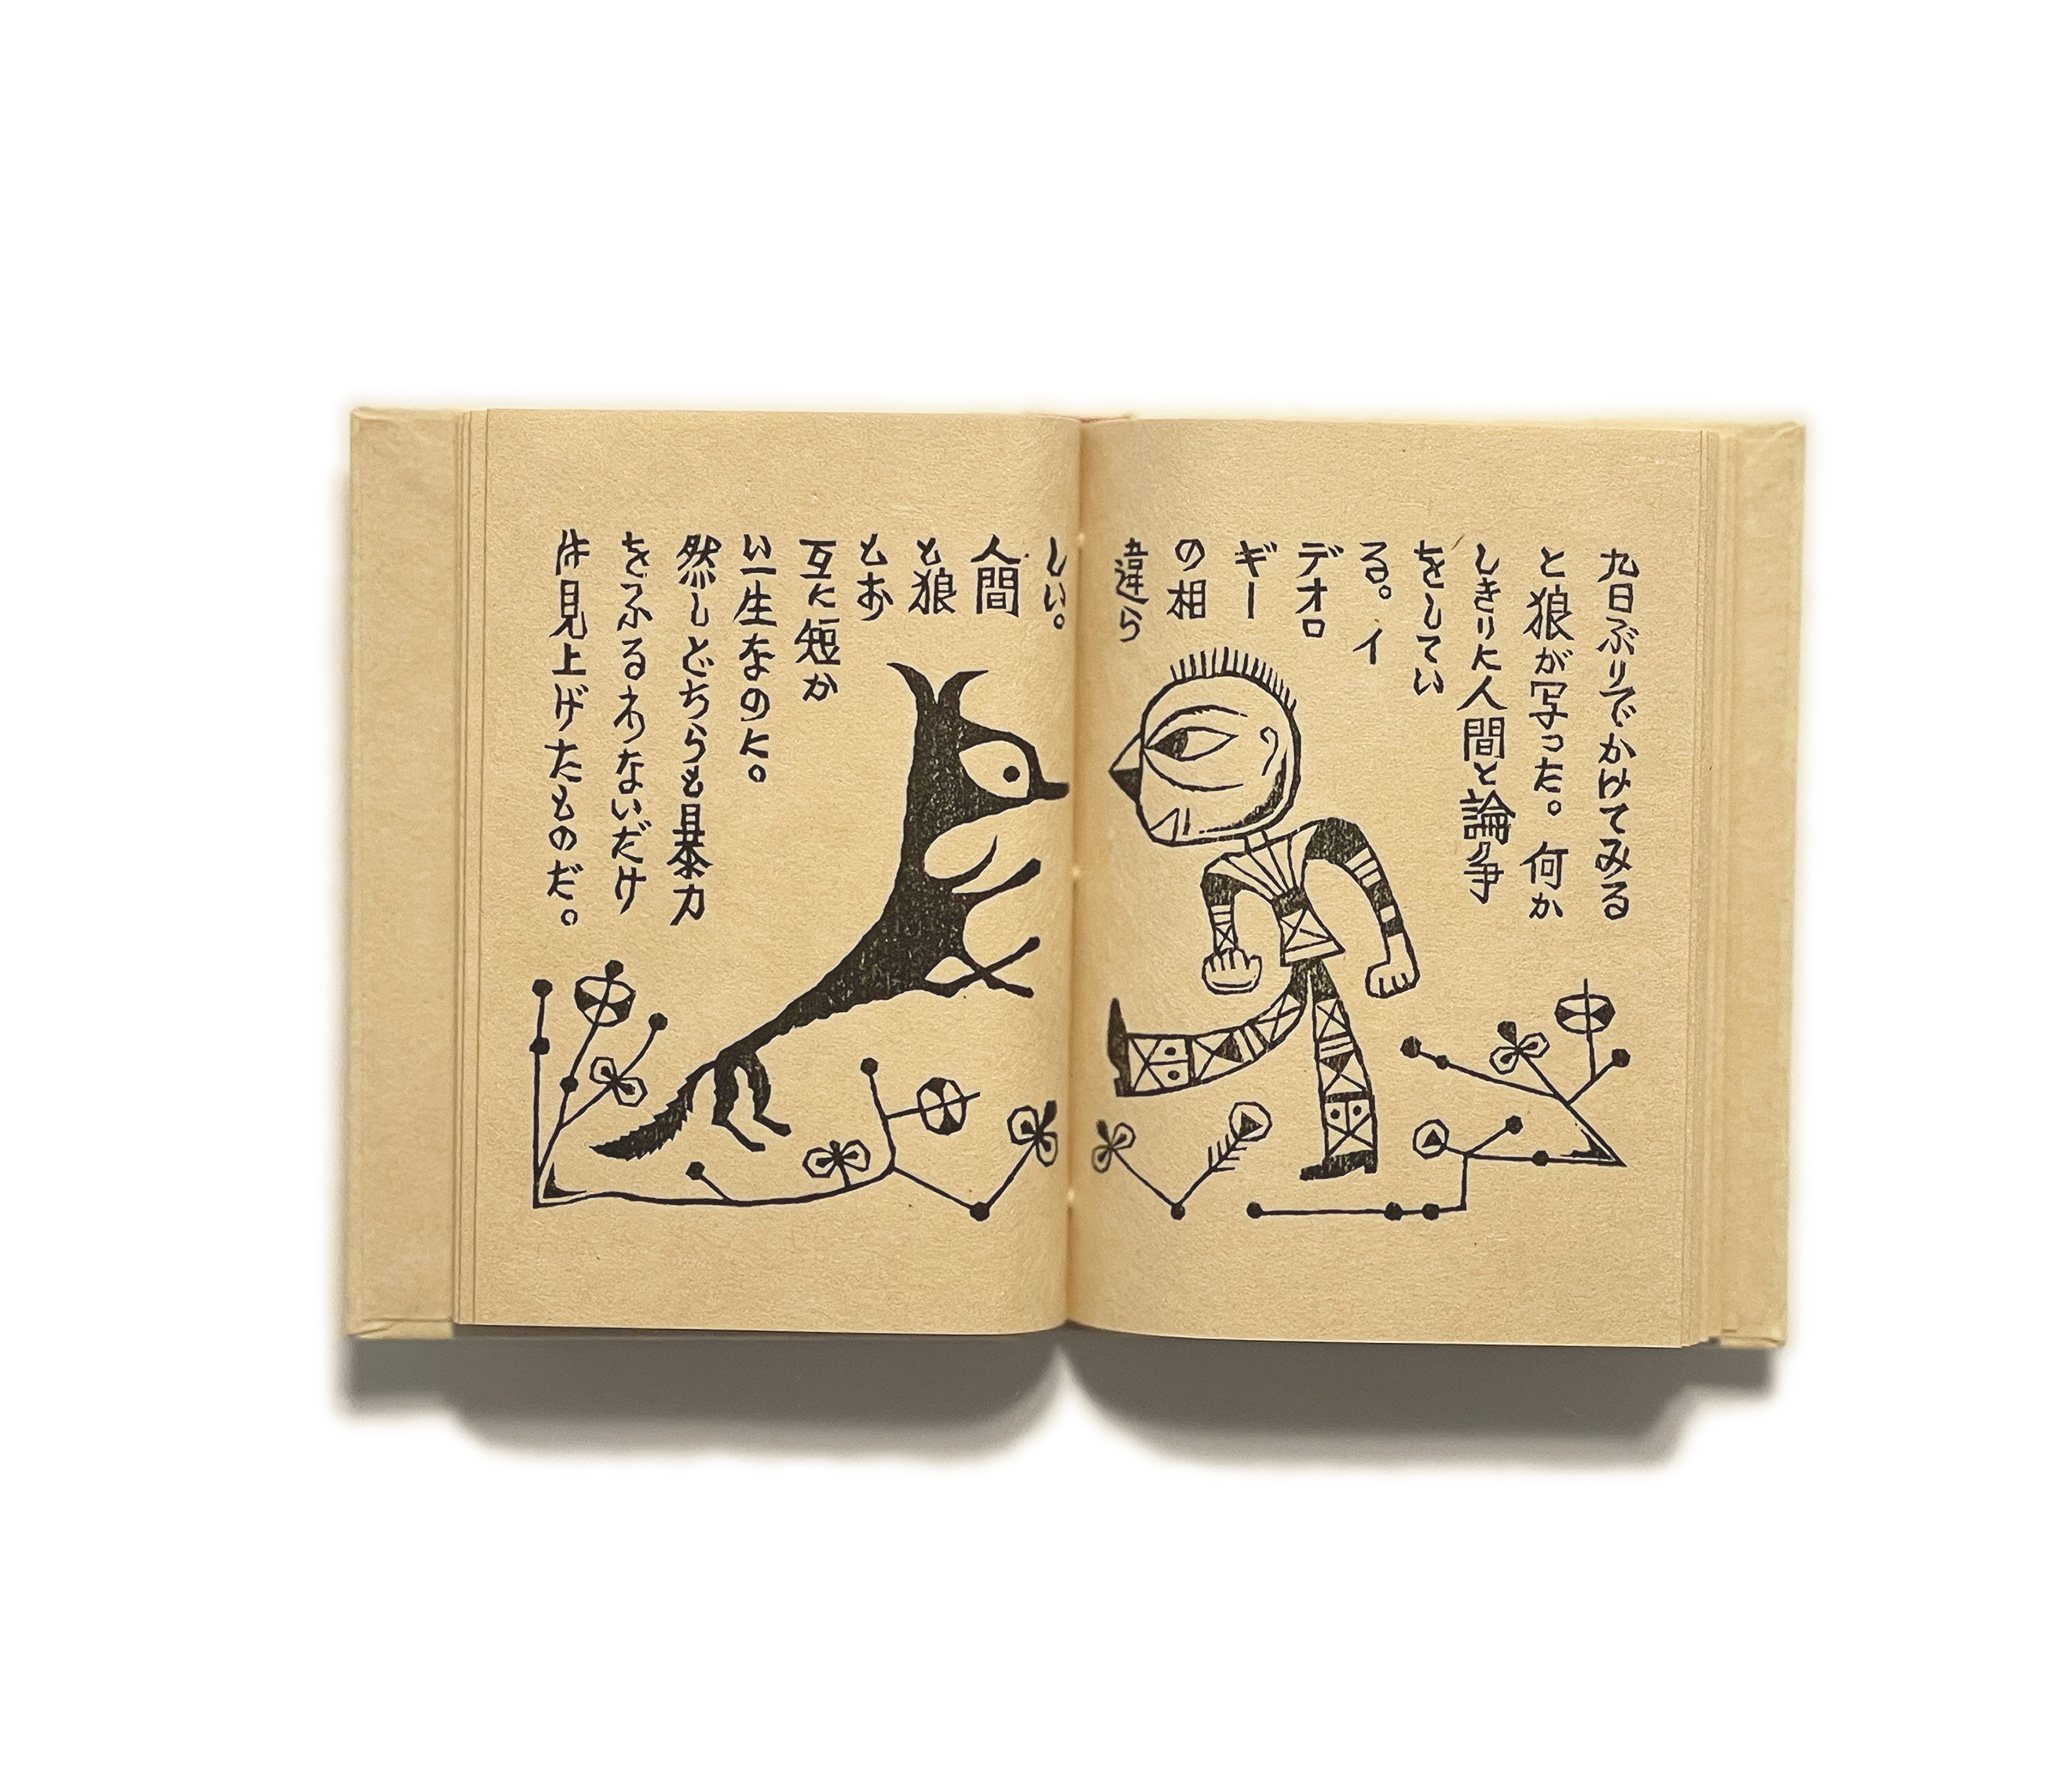 九日ぶりでかけてみる
と狼が写った。何か
しきりに人間と論争
をしてい
る。イ
デオロ
ギー
の相
違ら
しい。
人間
も狼
もお
互に短か
い一生なのに。
然しどちらも暴力
をふるわないだけ
は見上げたものだ。